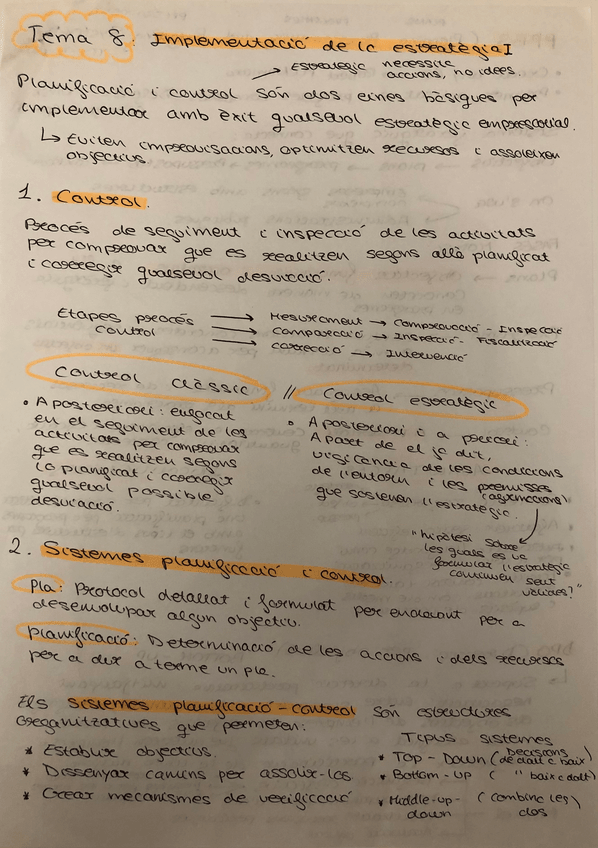 Tema 8: Implementació de la estratègia I
→ Estratègia necessita
accions, no idees.
Planificació i control són dos eines bàsiques per
implementar amb èxit qualsevol estratègia empresarial.
↳ Eviten improvisacions, optimitzen recursos i assoleixen
objectius.
1. Control.
Procés de seguiment i inspecció de les activitats
per comprovar que es realitzen segons allò planificat
i corregir qualsevol desviació.
Etapes procés → Mesurament → Comprovació - Inspecció
control → Comparació → Inspecció - Fiscalització
→ correcció → Intervenció
Control clàssic // Control estratègic
• A posteriori: enfocat
en el seguiment de les
activitats per comprovar
que es realitzen segons
lo planificat i corregir
qualsevol possible
desviació.
• A posteriori i a priori:
A part de el ja dit,
vigilancia de les condicions
de l'entorn i les premisses
(afirmacions)
que sostenen l'estratègia.
"hipòtesi sobre
les quals es va
formular l'estratègia
continuen sent
vàlides?"
2. Sistemes planificació i control.
Pla: Protocol detallat i formulat per endavant per a
desenvolupar algun objectiu.
Planificació: Determinació de les accions i dels recursos
per a dur a terme un pla.
Els sistemes planificació-control són estructures
organitzatives que permeten:
* Establir objectius.
* Dissenyar camins per assolir-los
* Crear mecanismes de verificació
Tipus sistemes
* Top-Down (Decisions de dalt a baix)
* Bottom-up ( " baix a dalt)
* Middle-up- (combina les)
down dos